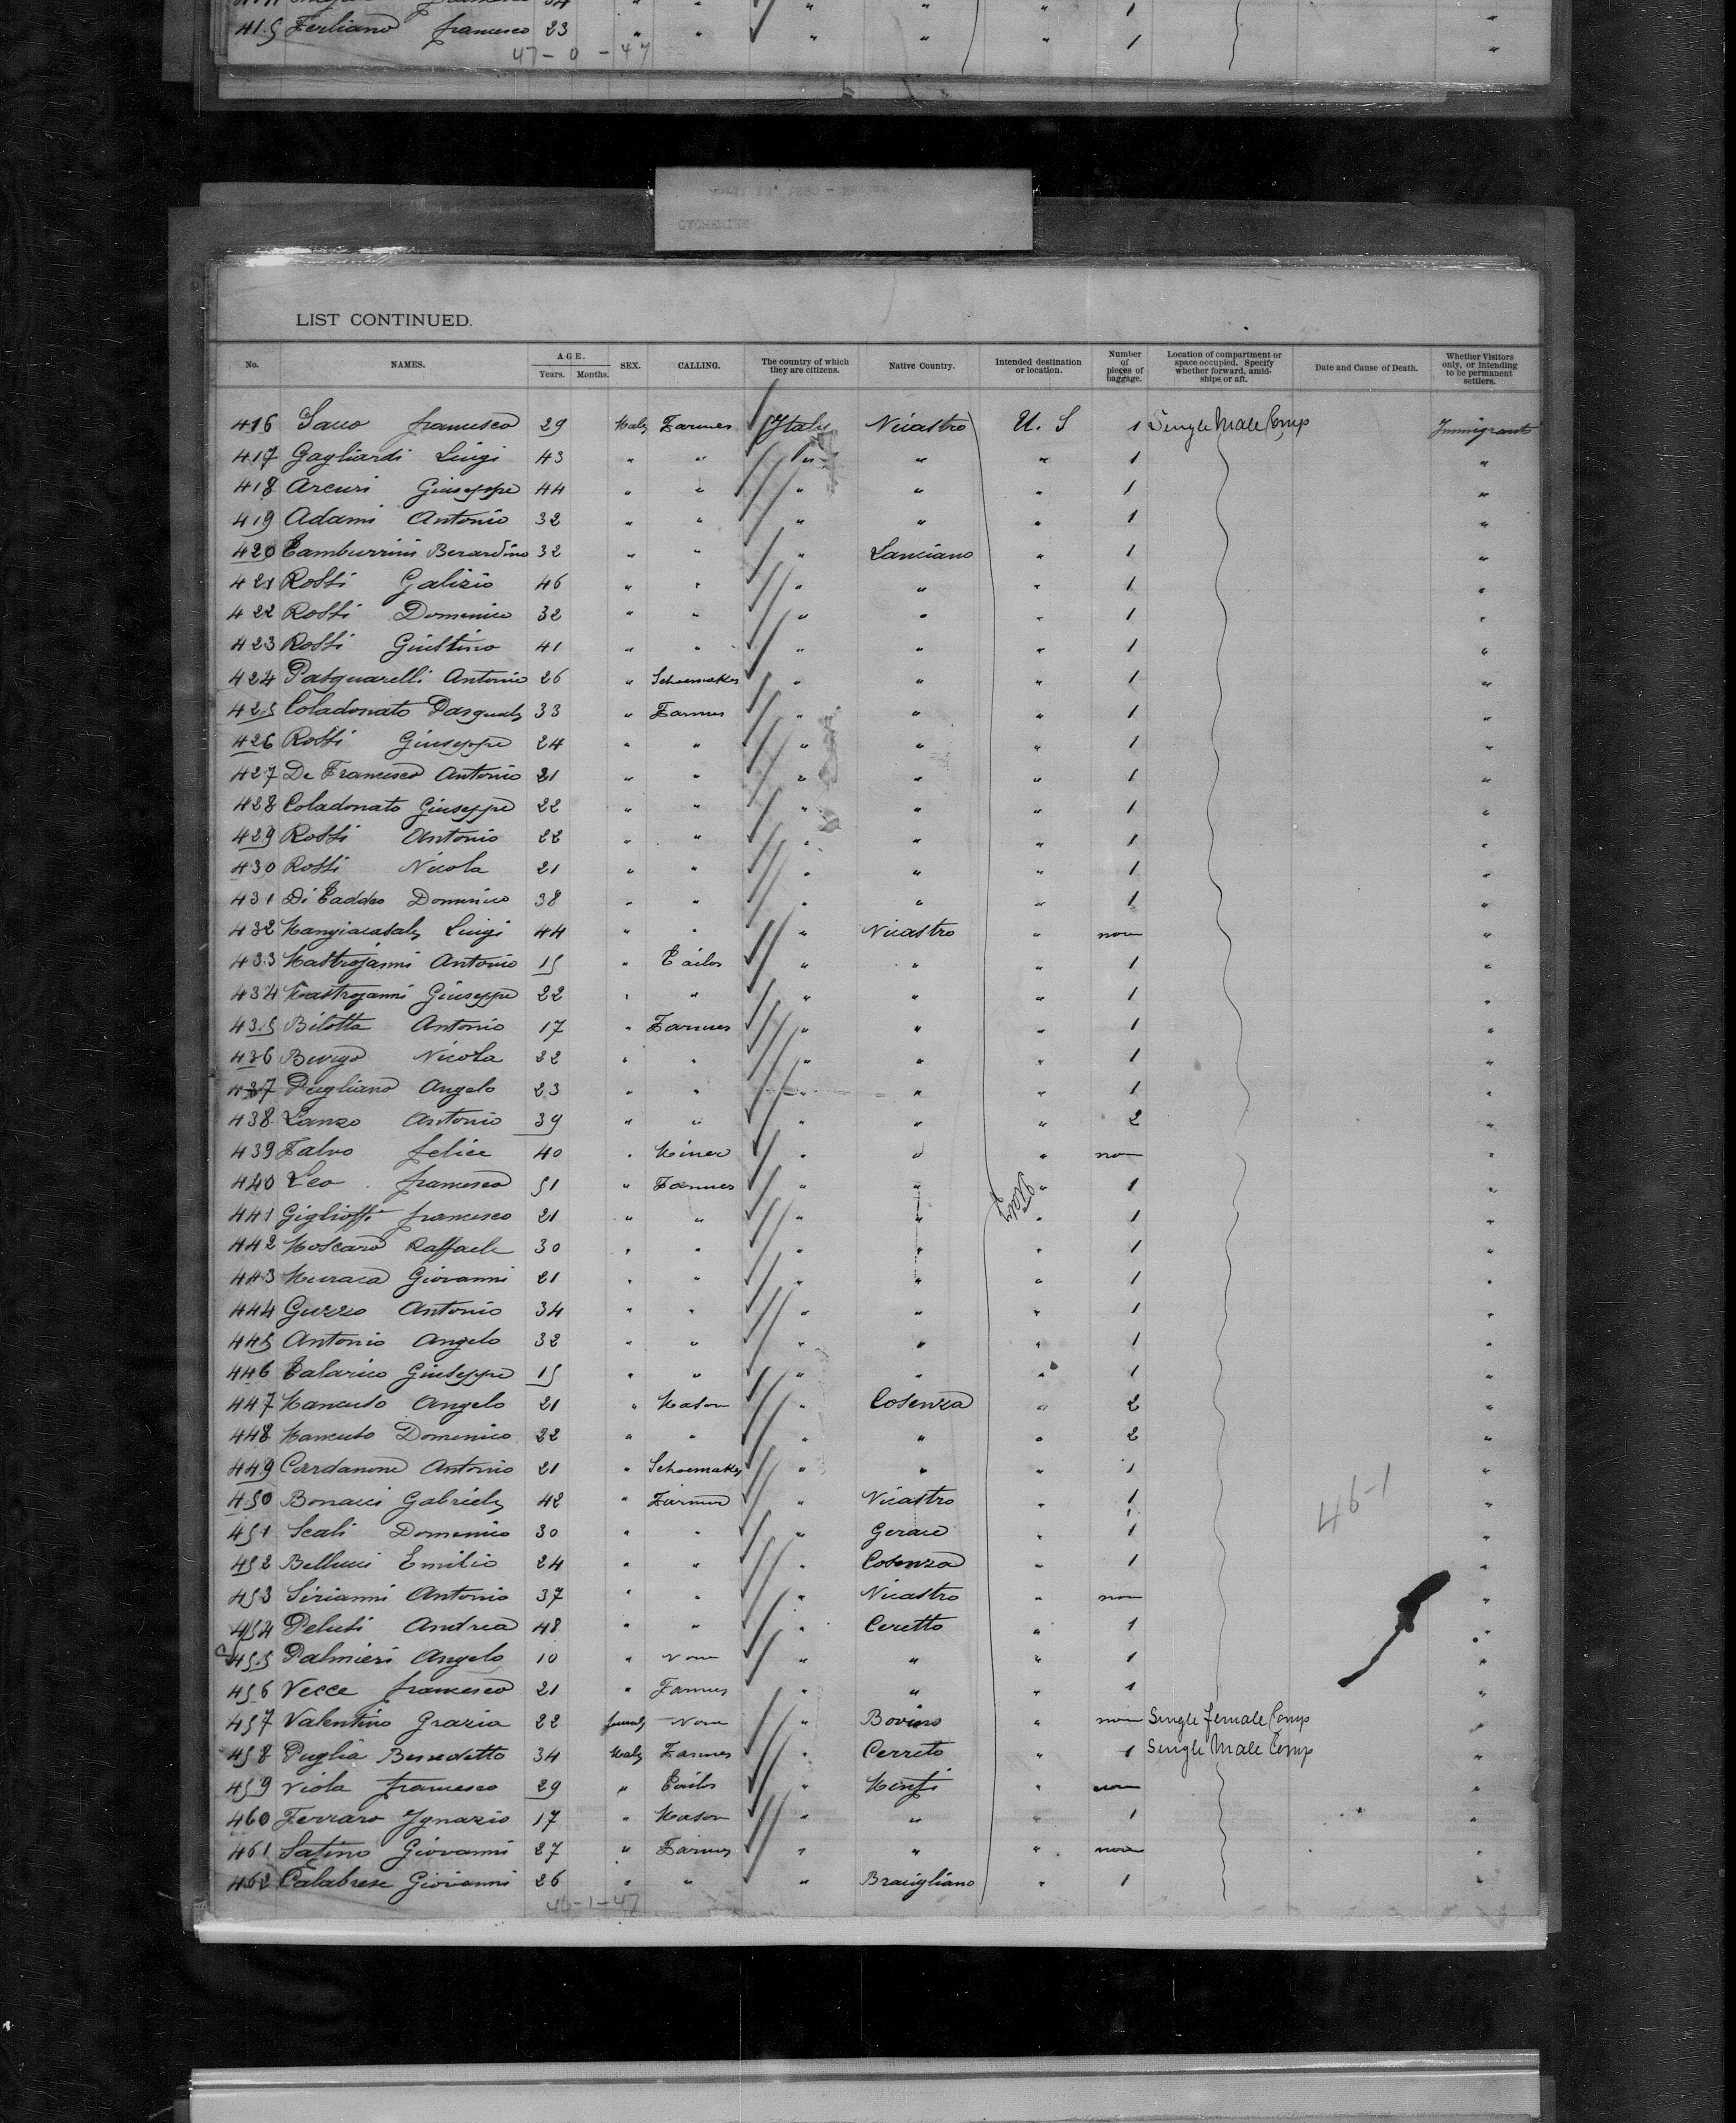 415 Ferliano francesco 23 " " " " " 1 "
47-0-47
LIST CONTINUED.
No. NAMES. AGE. Years. Months. SEX. CALLING. The country of which they are citizens. Native Country. Intended destination or location. Number of pieces of baggage. Location of compartment or space occupied. Specify whether forward, amidships or aft. Date and Cause of Death. Whether Visitors only, or intending to be permanent settlers.
416 Sacco francesco 29 Male Farmer Italy Nicastro U. S 1 Single Male Comp Immigrants
417 Gagliardi Luigi 43 " " " " " 1 "
418 Arcuri Giuseppe 44 " " " " " 1 "
419 Adami Antonio 32 " " " " " 1 "
420 Tamburrini Berardino 32 " " " Lanciano " 1 "
421 Rossi Galizio 46 " " " " " 1 "
422 Rossi Domenico 32 " " " " " 1 "
423 Rossi Giustino 41 " " " " " 1 "
424 Pasquarelli Antonio 26 " Schoemaker " " " 1 "
425 Coladonato Pasquale 33 " Farmer " " " 1 "
426 Rossi Giuseppe 24 " " " " " 1 "
427 De Francesco Antonio 21 " " " " " 1 "
428 Coladonato Giuseppe 22 " " " " " 1 "
429 Rossi Antonio 22 " " " " " 1 "
430 Rossi Nicola 21 " " " " " 1 "
431 Di Taddeo Domenico 38 " " " " " 1 "
432 Mangiacasale Luigi 44 " " " Nicastro " none "
433 Mastrojanni Antonio 15 " Tailor " " " 1 "
434 Mastrojanni Giuseppe 22 " " " " " 1 "
435 Bilotta Antonio 17 " Farmer " " " 1 "
436 Nicola 22 " " " " " 1 "
437 Pugliano Angelo 23 " " " " " 1 "
438 Lanzo Antonio 39 " " " " " 2 "
439 Falvo felice 40 " Miner " " " none "
440 Leo francesco 51 " Farmer " " " 1 "
441 Gigliotti francesco 21 " " " " " 1 "
442 Moscaro Raffaele 30 " " " " " 1 "
443 Muraca Giovanni 21 " " " " " 1 "
444 Guzzo Antonio 34 " " " " " 1 "
445 Antonio Angelo 32 " " " " " 1 "
446 Talarico Giuseppe 15 " " " " " 1 "
447 Mancuso Angelo 21 " Mason " Cosenza " 2 "
448 Mancuso Domenico 22 " " " " " 2 "
449 Cardamone Antonio 21 " Schoemaker " " " 1 "
450 Bonacci Gabriele 42 " Farmer " Nicastro " 1 "
46-1
451 Scali Domenico 30 " " " Gerace " 1 "
452 Bellucci Emilio 24 " " " Cosenza " 1 "
453 Sirianni Antonio 37 " " " Nicastro " none "
454 Pelusi Andrea 48 " " " Ceretto " 1 "
455 Palmieri Angelo 10 " None " " " 1 "
456 Vecce francesco 21 " Farmer " " " 1 "
457 Valentino Grazia 22 female None " Bovino " none Single female Comp "
458 Puglia Benedetto 34 Male Farmer " Cerreto " 1 Single Male Comp "
459 Viola francesco 29 " Tailor " Menfi " none "
460 Ferraro Ignazio 17 " Mason " " " 1 "
461 Satino Giovanni 27 " Farmer " " " none "
462 Calabrese Giovanni 26 " " " Bracigliano " 1 "
46-1-47